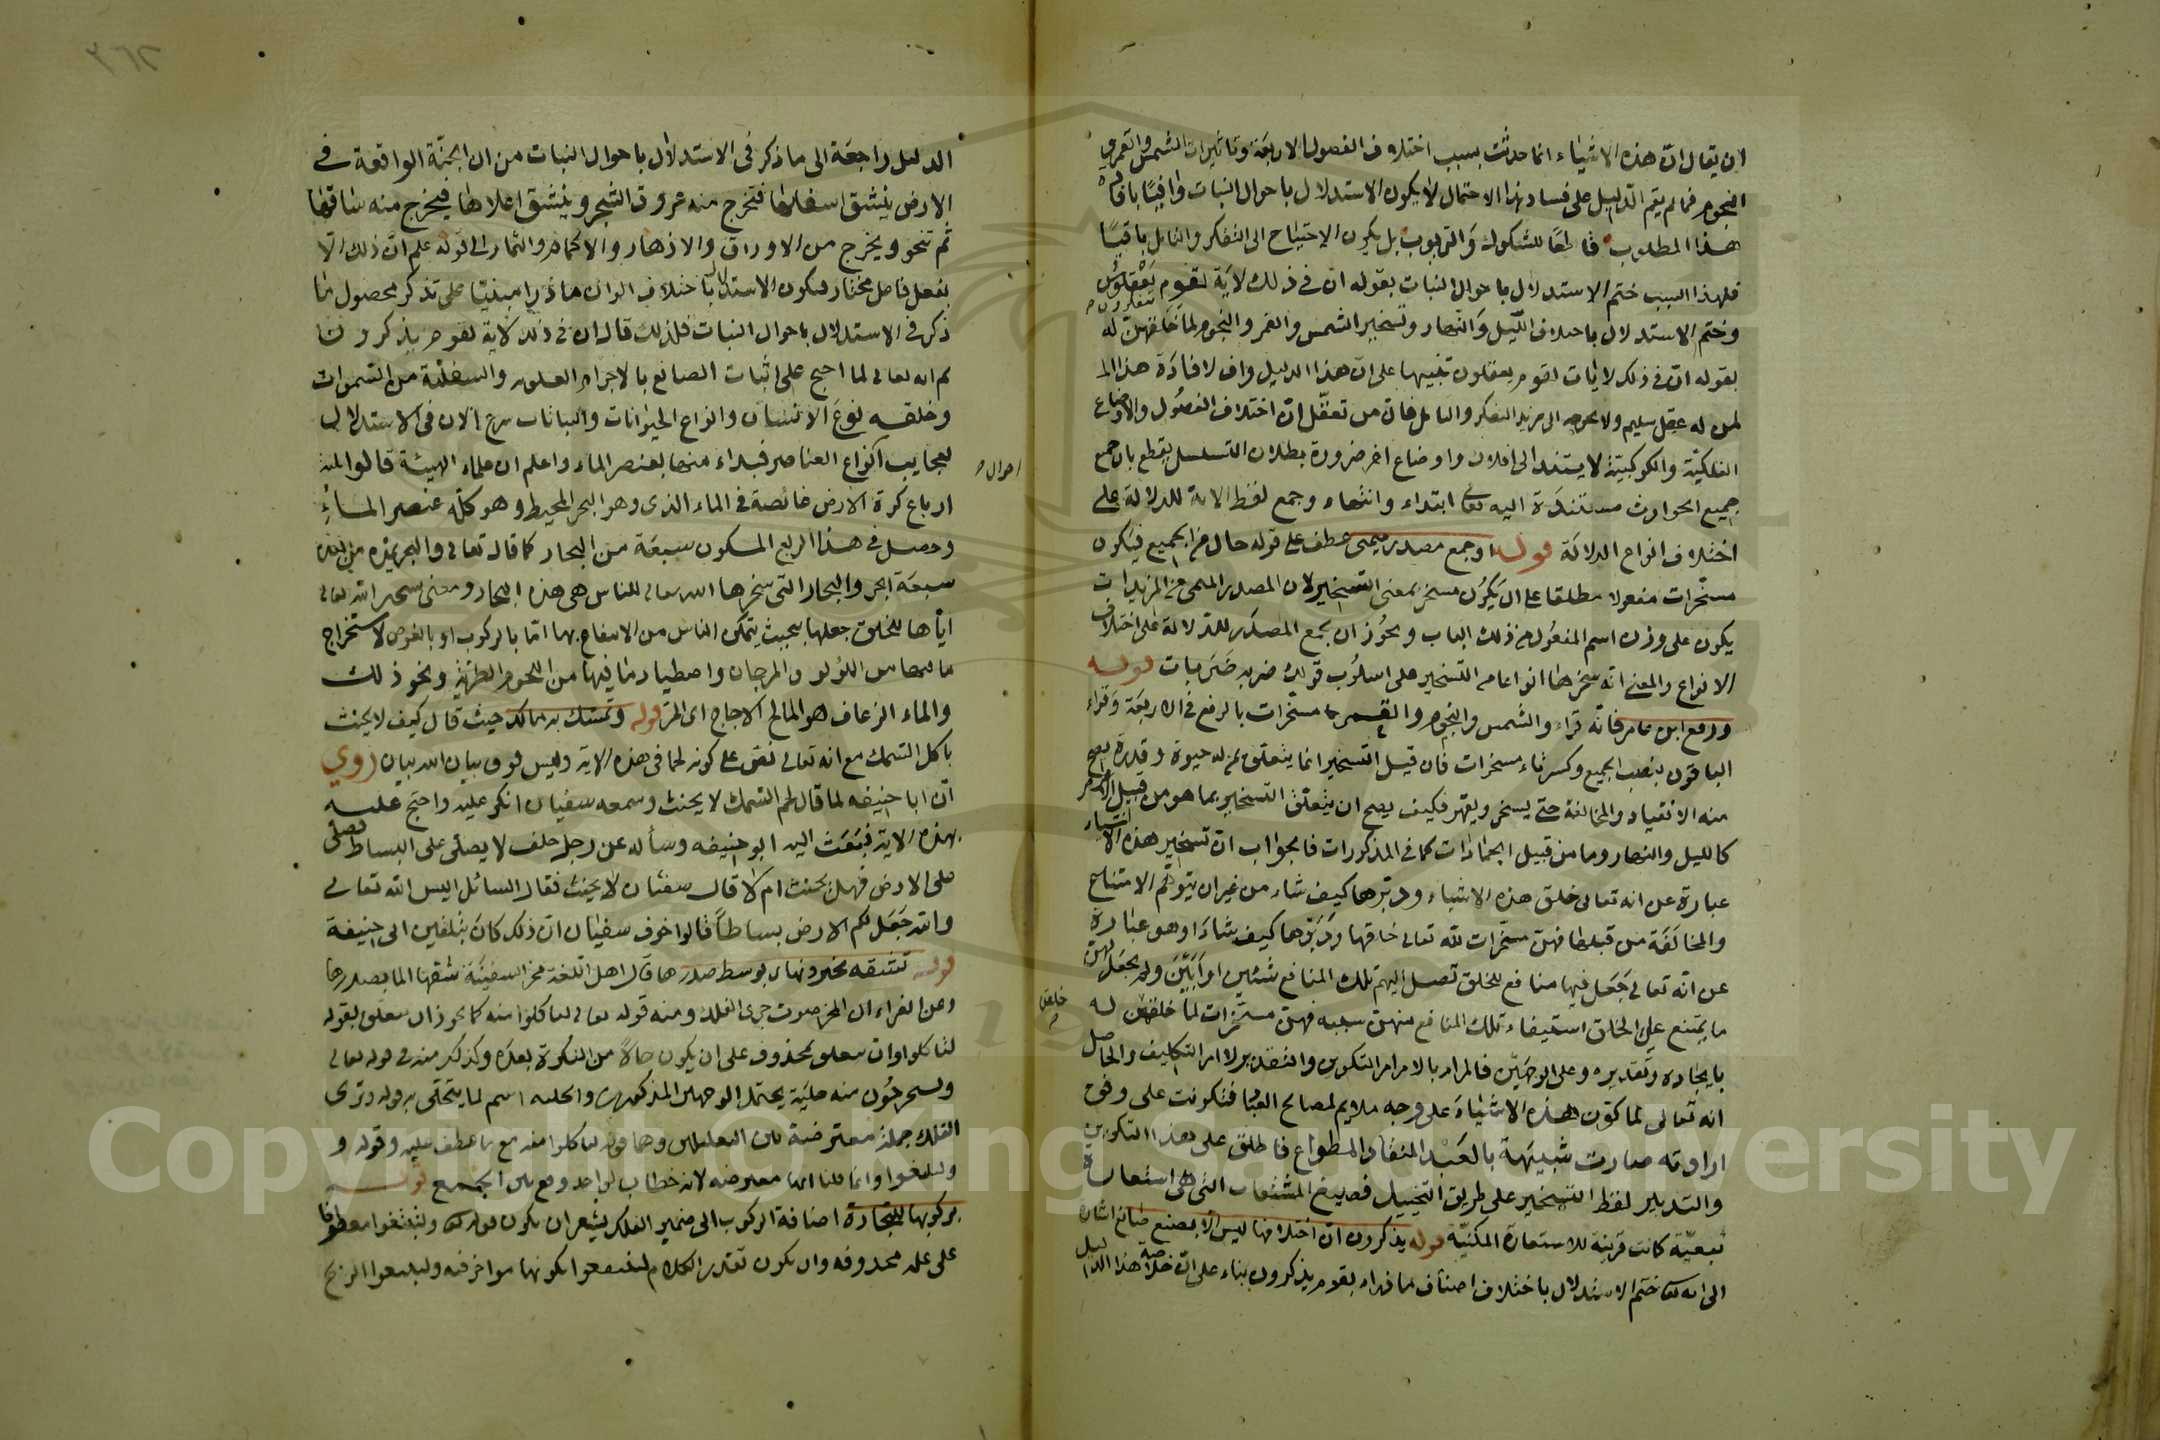 ان يقال ان هذه الاشياء انما حدثت بسبب اختلاف الفصول الاربعة وتاثيرات الشمس والقمر و
النجوم فما لم يقم الدليل على فساد هذا الاحتمال لا يكون الاستدلال باحوال النبات وافيا بافادة
هذا المطلوب قاطعا للشكوك والريوب بل يكون الاحتياج الى التفكر والتامل باقيا
فلهذا السبب ختم الاستدلال باحوال النبات بقوله ان في ذلك لاية لقوم يعقلون
يتفكرون
وختم الاستدلال باختلاف الليل والنهار وتسخير الشمس والقمر والنجوم لما خلقهن له
بقوله ان في ذلك لايات لقوم يعقلون تنبيها على ان هذا الدليل واف لافادة هذا
لمن له عقل سليم ولا يحوجه الى مزيد التفكر والتامل فان من تعقل ان اختلاف الفصول والاوضاع
الفلكية والكوكبية لا يستند الى افلاك واوضاع اخر ضرورة بطلان التسلسل يقطع بان جميع
جميع الحوادث مستندة اليه تعالى ابتداء وانتهاء وجمع لفظ الاية للدلالة على
اختلاف انواع الدلالة قوله اوجمع مصدر ميمى عطف على قوله حال من الجميع فيكون
مسخرات مفعولا مطلقا على ان يكون مسخر بمعنى التسخير لان المصدر الميمى من المزيدات
يكون على وزن اسم المفعول من ذلك الباب ويجوز ان يجمع المصدر للدلالة على اختلاف
الانواع والمعنى انه سخرها انواعا من التسخير على اسلوب قولك ضربه ضربات قوله
ورفع ابن عامر فانه قراء والشمس والنجوم والقمر مسخرات بالرفع في الاربعة وقراء
الباقون بنصب الجميع وكسر تاء مسخرات فان قيل التسخير انما يتعلق بمن له حيوة وقدرة يصح
منه الانقياد والمخالفة حتى يسخر ويقهر فكيف يصح ان يتعلق التسخير بما هو من قبيل
كالليل والنهار وما من قبيل الجمادات كما في المذكورات فالجواب ان تسخير هذه الاشياء
عبارة عن انه تعالى خلق هذه الاشياء ودبرها كيف شاء من غير ان يتوهم الامتناع
والمخالفة من قبلها فهن مسخرات لله تعالى خلقها ودبرها كيف شاء اوهو عبارة
عن انه تعالى جعل فيها منافع للخلق تصل اليهم تلك المنافع شئين او ابين ولم يجعل لهن
ما يمتنع على الخلق استيفاء تلك المنافع منهن بسببه فهن مسخرات لما خلقهن له
خلقن
بايجاده وتقديره وعلى الوجهين فالمراد بالامر امر التكوين والتقدير لا امر التكليف والحاصل
انه تعالى لما كون هذه الاشياء على وجه ملايم لمصالح العباد فتكونت على وفق
ارادته صارت شبيهة بالعبد المنقاد المطواع فاطلق على هذا التكوين
والتدبير لفظ التسخير على طريق التخييل فصيغ المشتقات التى هى استعارة
تبعية كانت قرينة للاستعارة المكنية قوله يذكرون ان اختلافها ليس الا بصنع صانع اشارة
الى انه تعالى ختم الاستدلال باختلاف اصناف ما ذراه بقوم يذكرون بناء على ان خلاصة هذا الدليل
الدليل راجعة الى ما ذكر في الاستدلال باحوال النبات من ان الحبة الواقعة في
الارض ينشق اسفلها فتخرج منه عروق الشجر وينشق اعلاها فيخرج منه ساقها
ثم تنمو ويخرج من الاوراق والازهار والاكمام والثمار الى قوله علم ان ذلك الا
بفعل فاعل مختار فيكون الاستدلال باختلاف الوان ما ذرا مبنيا على تذكر محصول ما
ذكر في الاستدلال باحوال النبات فلذلك قال ان في ذلك لاية لقوم يذكرون
ثم انه تعالى لما احتج على اثبات الصانع بالاجرام العلوية والسفلية من السموات
وخلقه نوع الانسان وانواع الحيوانات والنباتات شرع الان في الاستدلال
بعجايب انواع العناصر فبداء منها بعنصر الماء واعلم ان علماء الهيئة قالوا ثلثة
احوال
ارباع كرة الارض غائصة في الماء الذى وهو البحر المحيط وهو كله عنصر الماء
وحصل في هذا الربع المسكون سبعة من البحار كما قال تعالى والبحر يمده من بعده
سبعة ابحر والبحار التى سخرها الله تعالى للناس هى هذه البحار ومعنى تسخير الله تعالى
اياها للخلق جعلها بحيث يتمكن الناس من الانتفاع بها اما بالركوب او بالغوص لاستخراج
ما فيها من اللؤلؤ والمرجان واصطياد ما فيها من اللحوم الطرية ونحو ذلك
والماء الزعاق هو المالح الاجاج اى المر قوله وتمسك به مالك حيث قال كيف لا يحنث
باكل السمك مع انه تعالى نص على كونه لحما في هذه الاية وليس فوق بيان الله بيان روي
ان ابا حنيفه لما قال لحم السمك لا يحنث وسمعه سفيان انكر عليه واحتج عليه
بهذه الاية فبعث اليه ابو حنيفه وسأله عن رجل حلف لا يصلى على البساط فصلى
على الارض فهل يحنث ام لا قال سفيان لا يحنث فقال السائل اليس الله تعالى
والله جعل لكم الارض بساطا قالوا فعرف سفيان ان ذلك كان بتلقين ابى حنيفة
قوله تشقه بحيزومها اى بوسط صدرها قال اهل اللغة مخر السفينة شقها الماء بصدرها
وعن الفراء ان المخر صوت جرى الفلك ومنه قوله تعالى لتاكلوا منه كما يجوز ان يتعلق بقوله
لتاكلوا وان يتعلق بمحذوف على ان يكون حالا من النكرة بعده وكذلك منه في قوله تعالى
وتستخرجون منه حلية يحتمل الوجهين المذكورين والحلية اسم لما يتحلى به قوله وترى
الفلك جملة معترضة بين التعليلين وهما قوله لتاكلوا منه مع ما عطف عليه وقوله و
ولتبتغوا وانما قلنا انها معترضة لانه خطاب لواحد وقع بين الجمع قوله
بركوبها للتجارة اضافة الركوب الى ضمير الفلك يشعر ان يكون قوله تعالى ولتبتغوا معطوفا
على علة محذوفه وان يكون تقدير الكلام لتنتفعوا بكونها مواخر فيه ولتبتغوا الربح
٣٦٢
Copyright © King Saud University